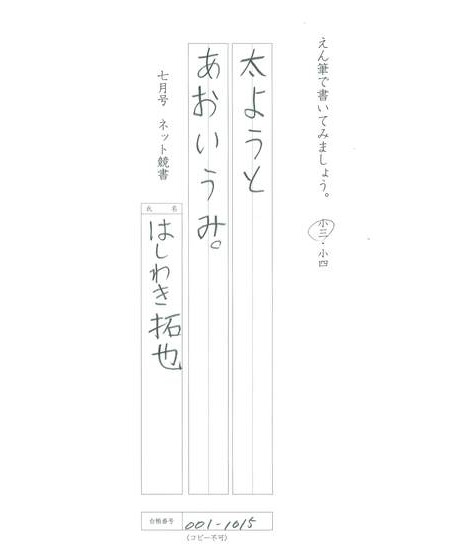 えん筆で書いてみましょう。
小三・小四
太ようと
あおいうみ。
七月号 ネット競書
氏名
はしわき拓也
合格番号 001-1015
(コピー不可)